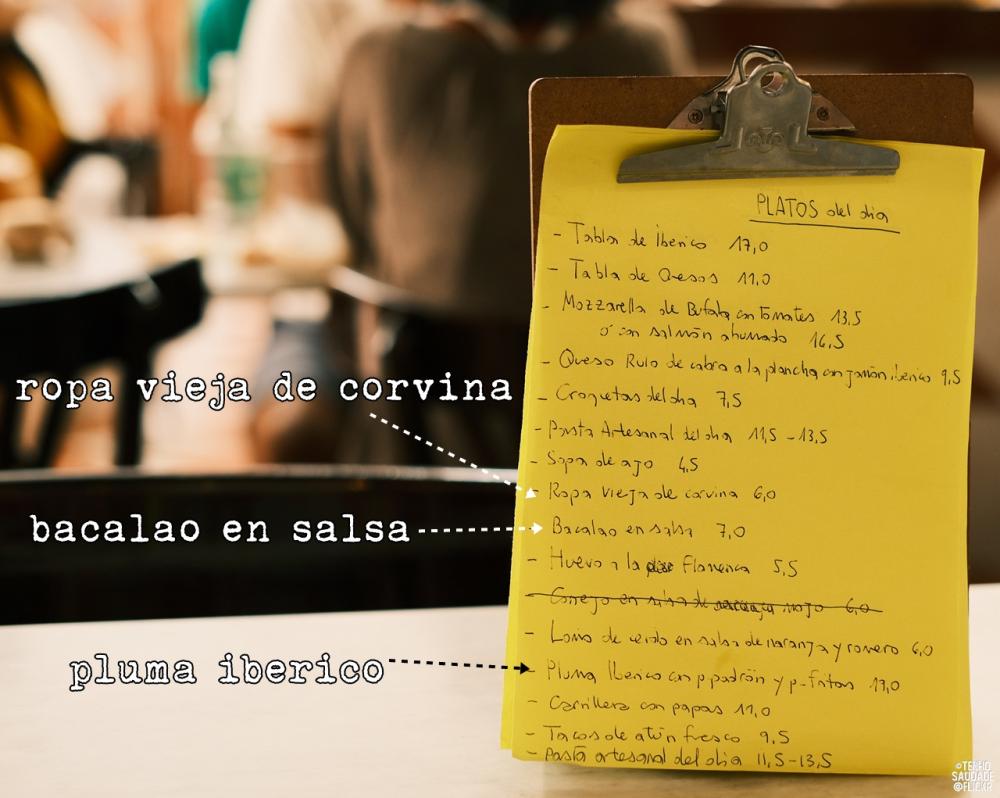 PLATOS del dia
- Tabla de Iberico 17,0
- Tabla de Quesos 11,0
- Mozzarella de Bufala con Tomates 13,5
ó con salmón ahumado 16,5
- Queso Rulo de cabra a la plancha con jamón iberico 9,5
- Croquetas del dia 7,5
- Pasta Artesanal del dia 11,5 - 13,5
- Sopa de ajo 4,5
ropa vieja de corvina
- Ropa vieja de corvina 6,0
bacalao en salsa
- Bacalao en salsa 7,0
- Huevo a la Flamenca 5,5
- Conejo en salsa de mojo 6,0
- Lomo de cerdo en salsa de naranja y romero 6,0
pluma iberico
- Pluma Iberico con p. padrón y p. fritas 17,0
- Carrillera con papas 11,0
- Tacos de atún fresco 9,5
- Pasta artesanal del dia 11,5 - 13,5
©TERIO
SAUDADE
@FLICKR